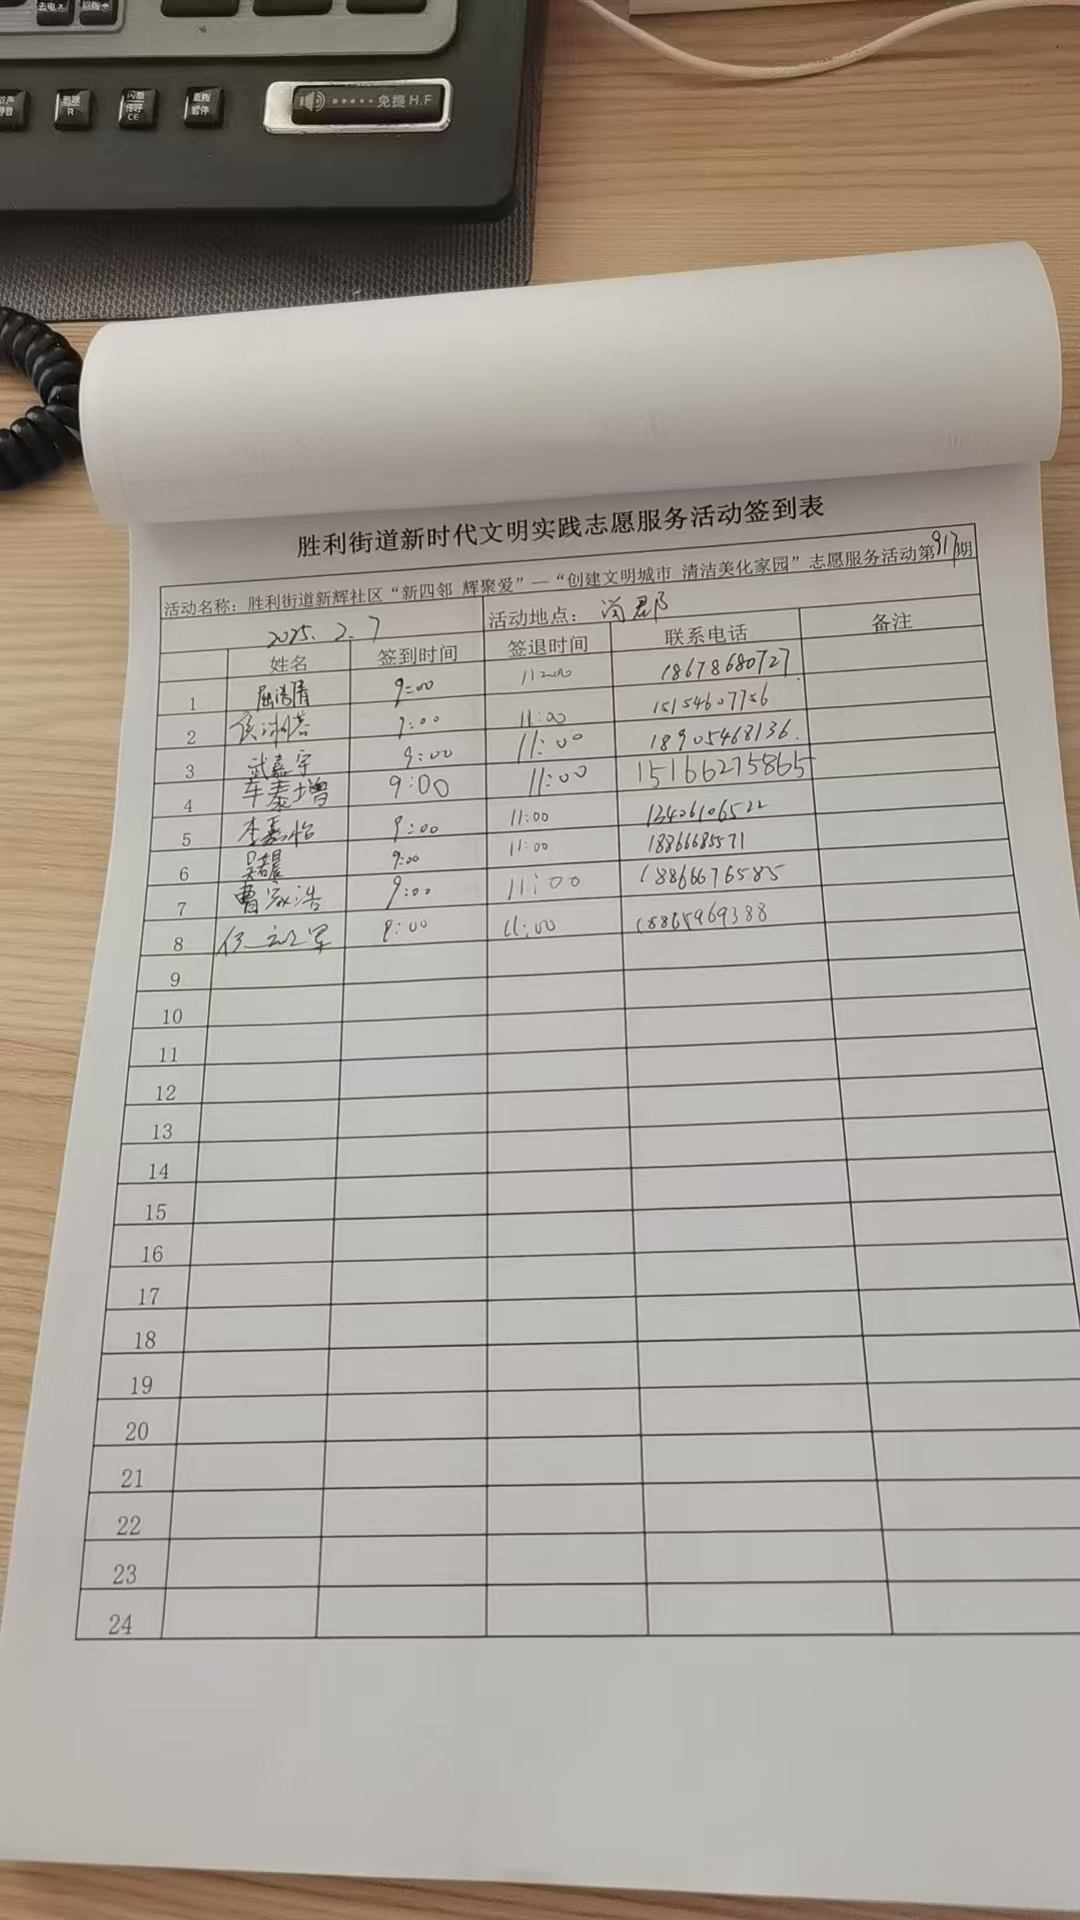 免提 H.F
重拨
暂停
胜利街道新时代文明实践志愿服务活动签到表
活动名称：胜利街道新辉社区“新四邻 辉聚爱”—“创建文明城市 清洁美化家园”志愿服务活动第917期
2025.2.7 活动地点：尚郡
姓名 签到时间 签退时间 联系电话 备注
1 9:00 11:00 18678680727
2 9:00 11:00 15154607756
3 武嘉宇 9:00 11:00 18905468136
4 车泰增 9:00 11:00 15166275865
5 李嘉怡 9:00 11:00 13406106522
6 9:00 11:00 18866685571
7 曹家浩 9:00 11:00 18866676585
8 9:00 11:00 18865969388
9
10
11
12
13
14
15
16
17
18
19
20
21
22
23
24